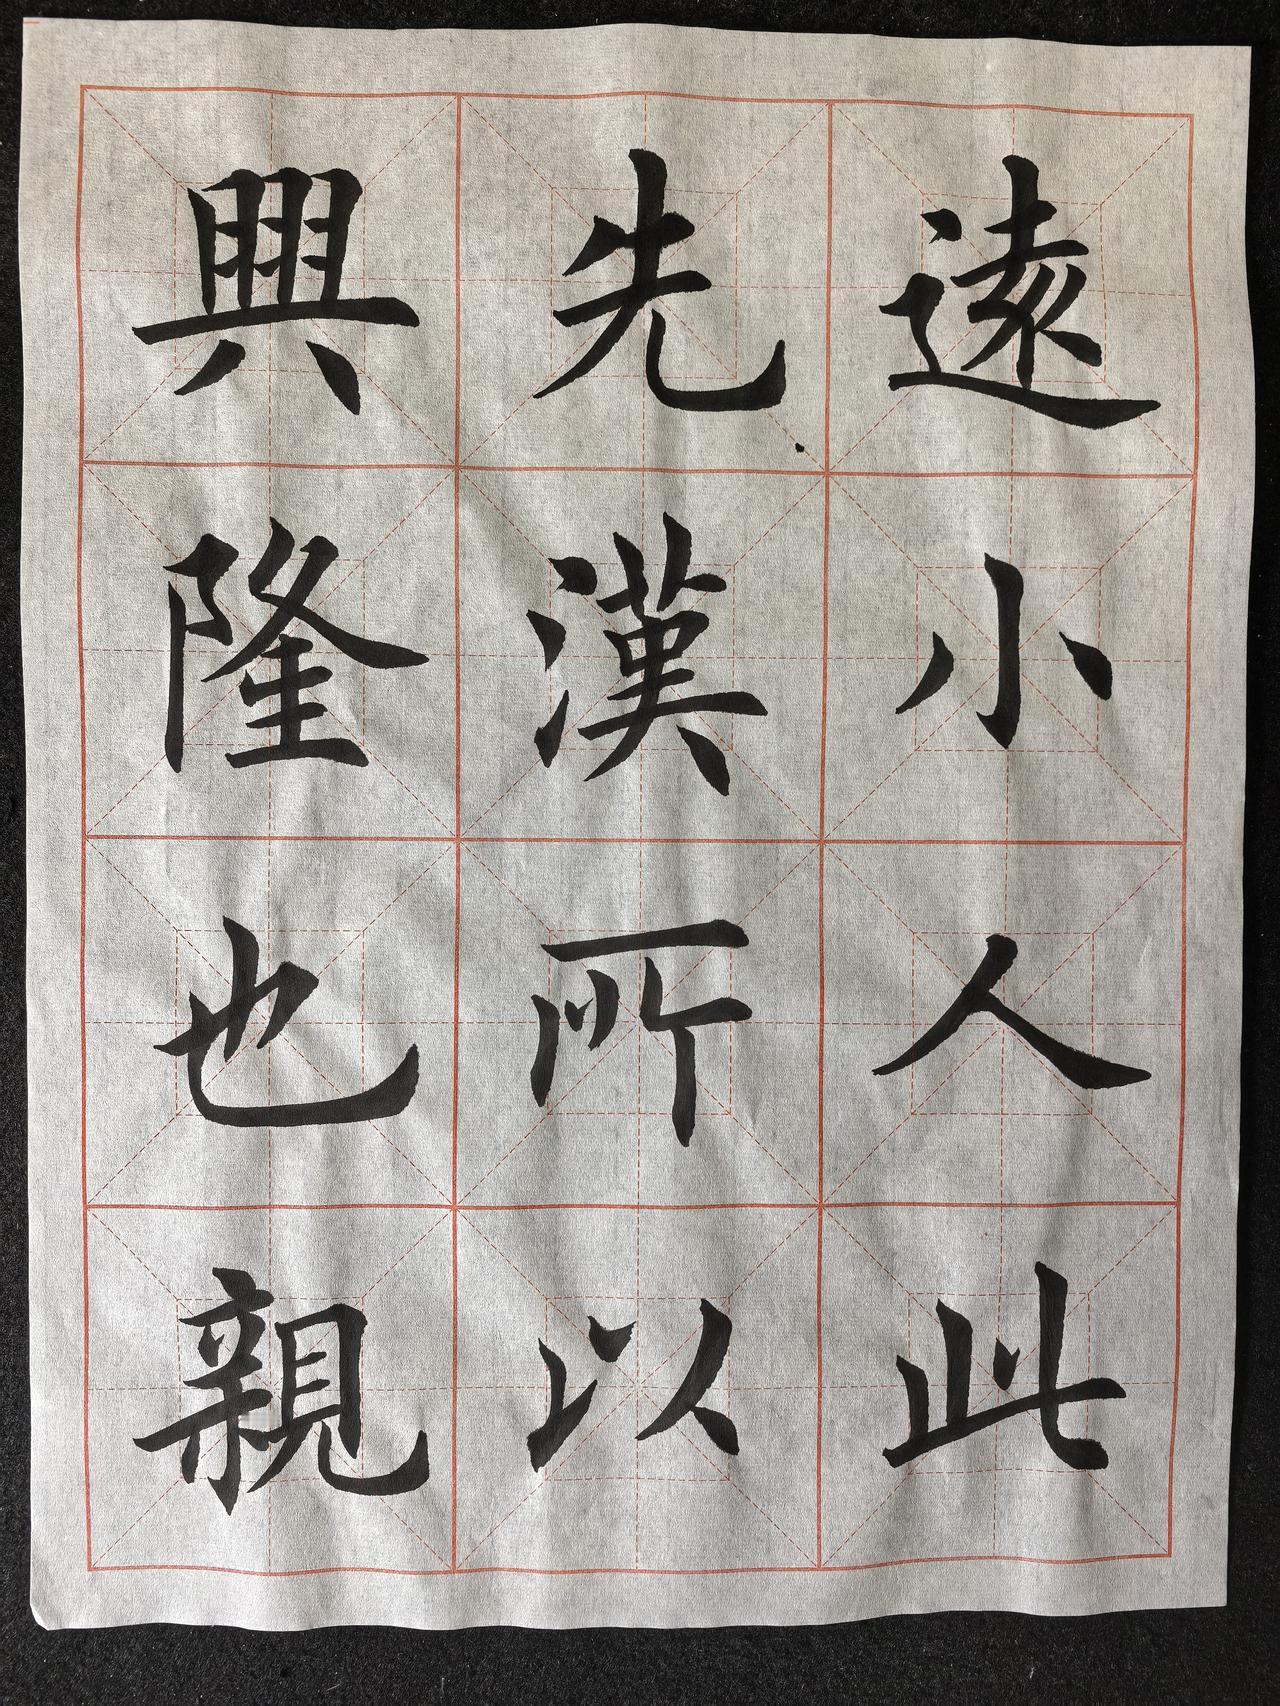 遠小人此
先漢所以
興隆也親